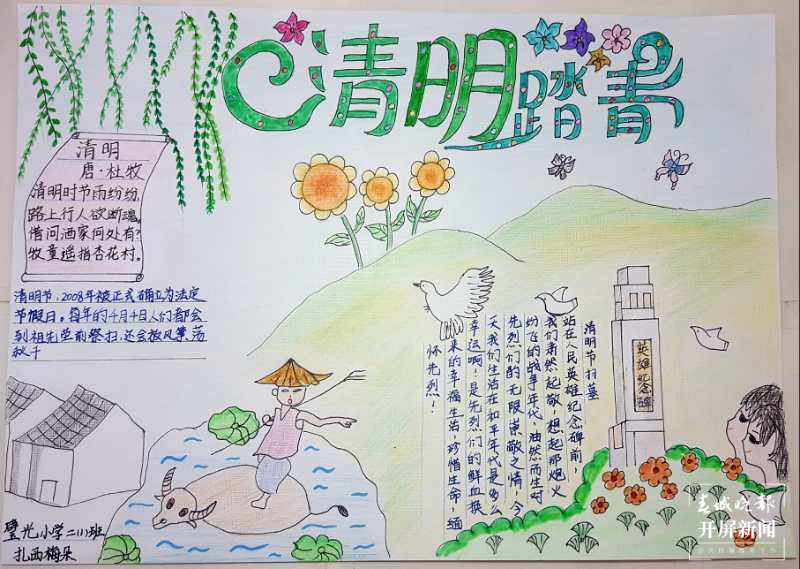 清明踏青
清明
唐·杜牧
清明时节雨纷纷,
路上行人欲断魂。
借问酒家何处有?
牧童遥指杏花村。
清明节:2008年被正式确立为法定
节假日。每年的4月4日人们都会
到祖先坟前祭扫,还会放风筝、荡
秋千
清明节扫墓
站在人民英雄纪念碑前,
我们肃然起敬,想起那炮火
纷飞的战争年代,油然而生对
先烈们的无限崇敬之情,今
天我们生活在和平年代是多么
幸运啊!是先烈们的鲜血换
来的幸福生活,珍惜生命,缅
怀先烈!
英雄纪念碑
璧光小学二(1)班
扎西梅朵
春城晚报
开屏新闻